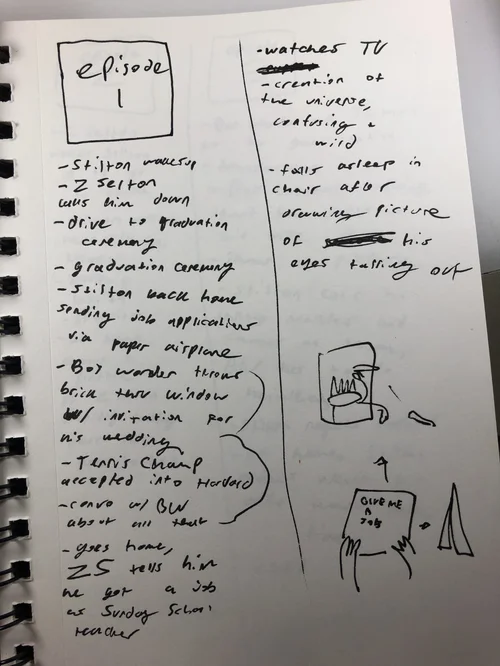 episode
1
- Stilton wakes up
- Z Selton
calls him down
- drive to graduation
ceremony
- graduation ceremony
- Stilton back home
sending job applications
via paper airplane
- Boy wonder throws
brick thru window
w/ invitation for
his wedding
- Tennis Champ
accepted into Harvard
- convo w/ BW
about all that
- goes home,
ZS tells him
he got a job
as Sunday School
teacher
- watches TV
- creation of
the universe,
confusing &
wild
- falls asleep in
chair after
drawing picture
of his
eyes falling out
GIVE ME
A
JOB